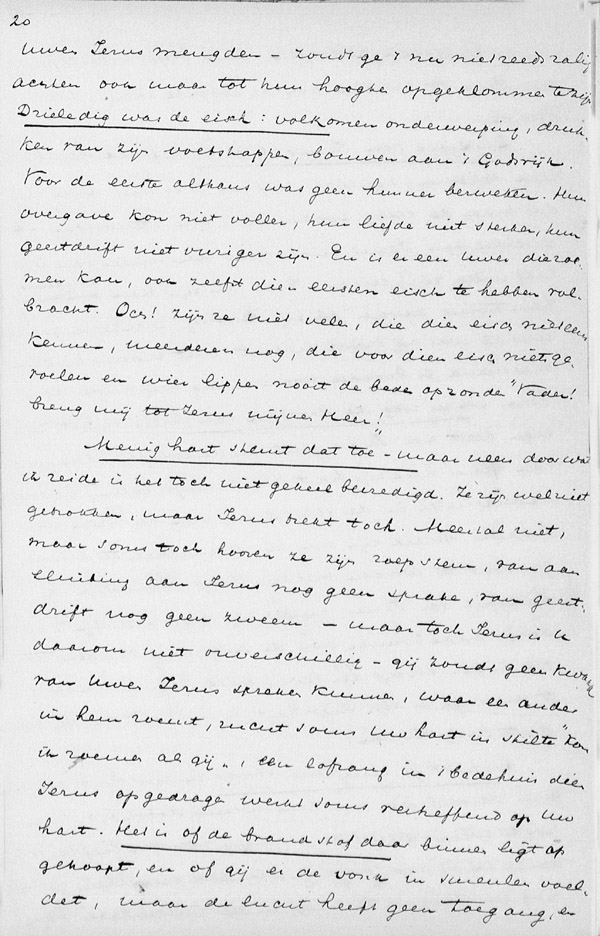 20
Uwen Jezus mengden – zoudt ge 't nu niet reeds zalig
achten ook maar tot hun hoogte opgeklommen te zijn
Drieledig was de eisch: volkomen onderwerping, drin-
ken van zijn boetschappen, bouwen aan 't Godsrijk.
Voor de eerste althans was geen hunner berekend. Hun
overgave kon niet voller, hun liefde niet sterker, hun
geestdrift niet vuriger zijn. En is er een Uwer die roe-
men kan, ook zelfs dien eersten eisch te hebben vol-
bracht. Och! zijn ze niet velen, die dien eisch niet eens
kennen, meerderen nog, die voor dien eisch niet ge-
voelen en wier lippen nooit de bede opzonden "Vader!
breng mij tot Jezus mijnen Heer!"
Menig hart stemt dat toe – maar neen door wat
ik zeide is het toch niet geheel bevredigd. Ze zijn wel niet
getrokken, maar Jezus trekt toch. Meestal niet,
maar soms toch hooren ze zijn roepstem, van aan
sluiting aan Jezus nog geen sprake, van geest-
drift nog geen zweem – maar toch Jezus is U
daarom niet onverschillig – gij zoudt geen kwaad
van Uwen Jezus spreken kunnen, waar een ander
in hem roemt, zucht soms Uw hart in stilte "Kon
ik roemen als gij", een lofzang in 't bedehuis dien
Jezus opgedragen werkt soms verheffend op Uw
hart. Het is of de brandstof daar binnen ligt op
gehoopt, en of gij er de vonk in smeulen voel-
det, maar de lucht heeft geen toegang, en